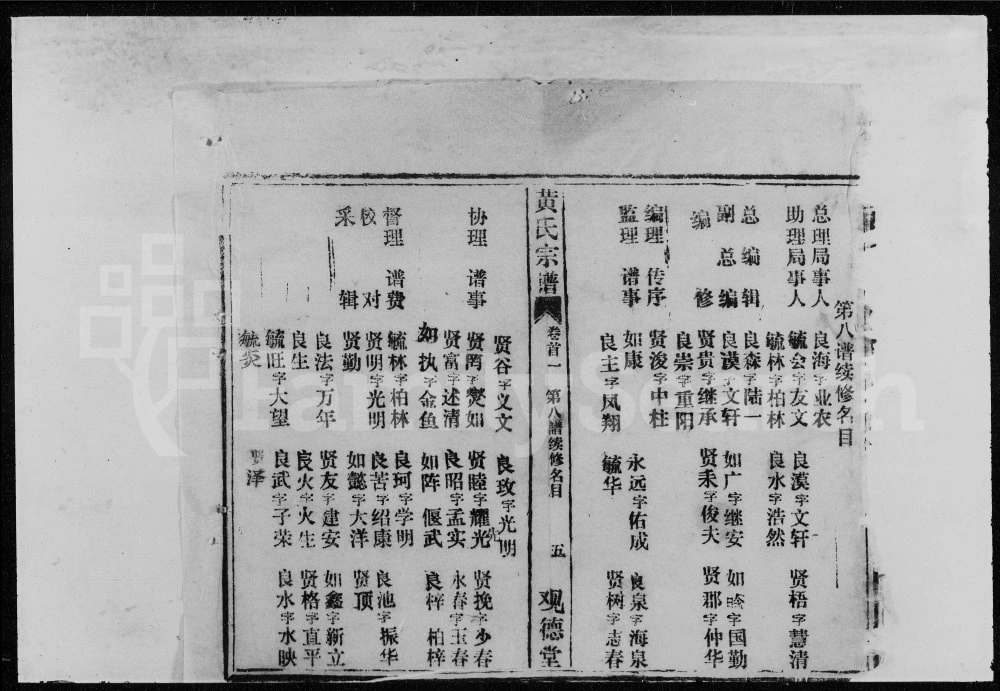 第八谱续修名目
总理局事人 良海字业农 良漠字文轩 贤梧字慧清
助理局事人 毓会字友文 良水字浩然
毓林字柏林
总编辑 良森字陆一
副总编 良漠字文轩 如广字继安 如晗字国勤
编修 贤贵字继承 贤耒字俊夫 贤郡字仲华
良崇字重阳
编理传序 贤浚字中柱
监理谱事 如康 永远字佑成 良泉字海泉
良主字凤翔 毓华 贤树字志春
黄氏宗谱 卷首一 第八谱续修名目 五 观德堂
贤谷字义文 良玫字光明
协理谱事 贤罔字燮如 贤睦字耀先 贤挽字少春
贤富字述清 良昭字孟实 永春字玉春
如执字金鱼 如阵 偃武 良梓 柏梓
督理谱费 毓林字柏林 良珂字学明
校对 贤明字光明 良苦字绍康 良池字振华
采辑 贤勤 如懿字大洋 贤顶
良法字万年 贤友字建安 如鑫字新立
良生 良火字火生 贤格字直平
毓旺字大望 良武字子荣 良水字水映
毓炎 贤泽